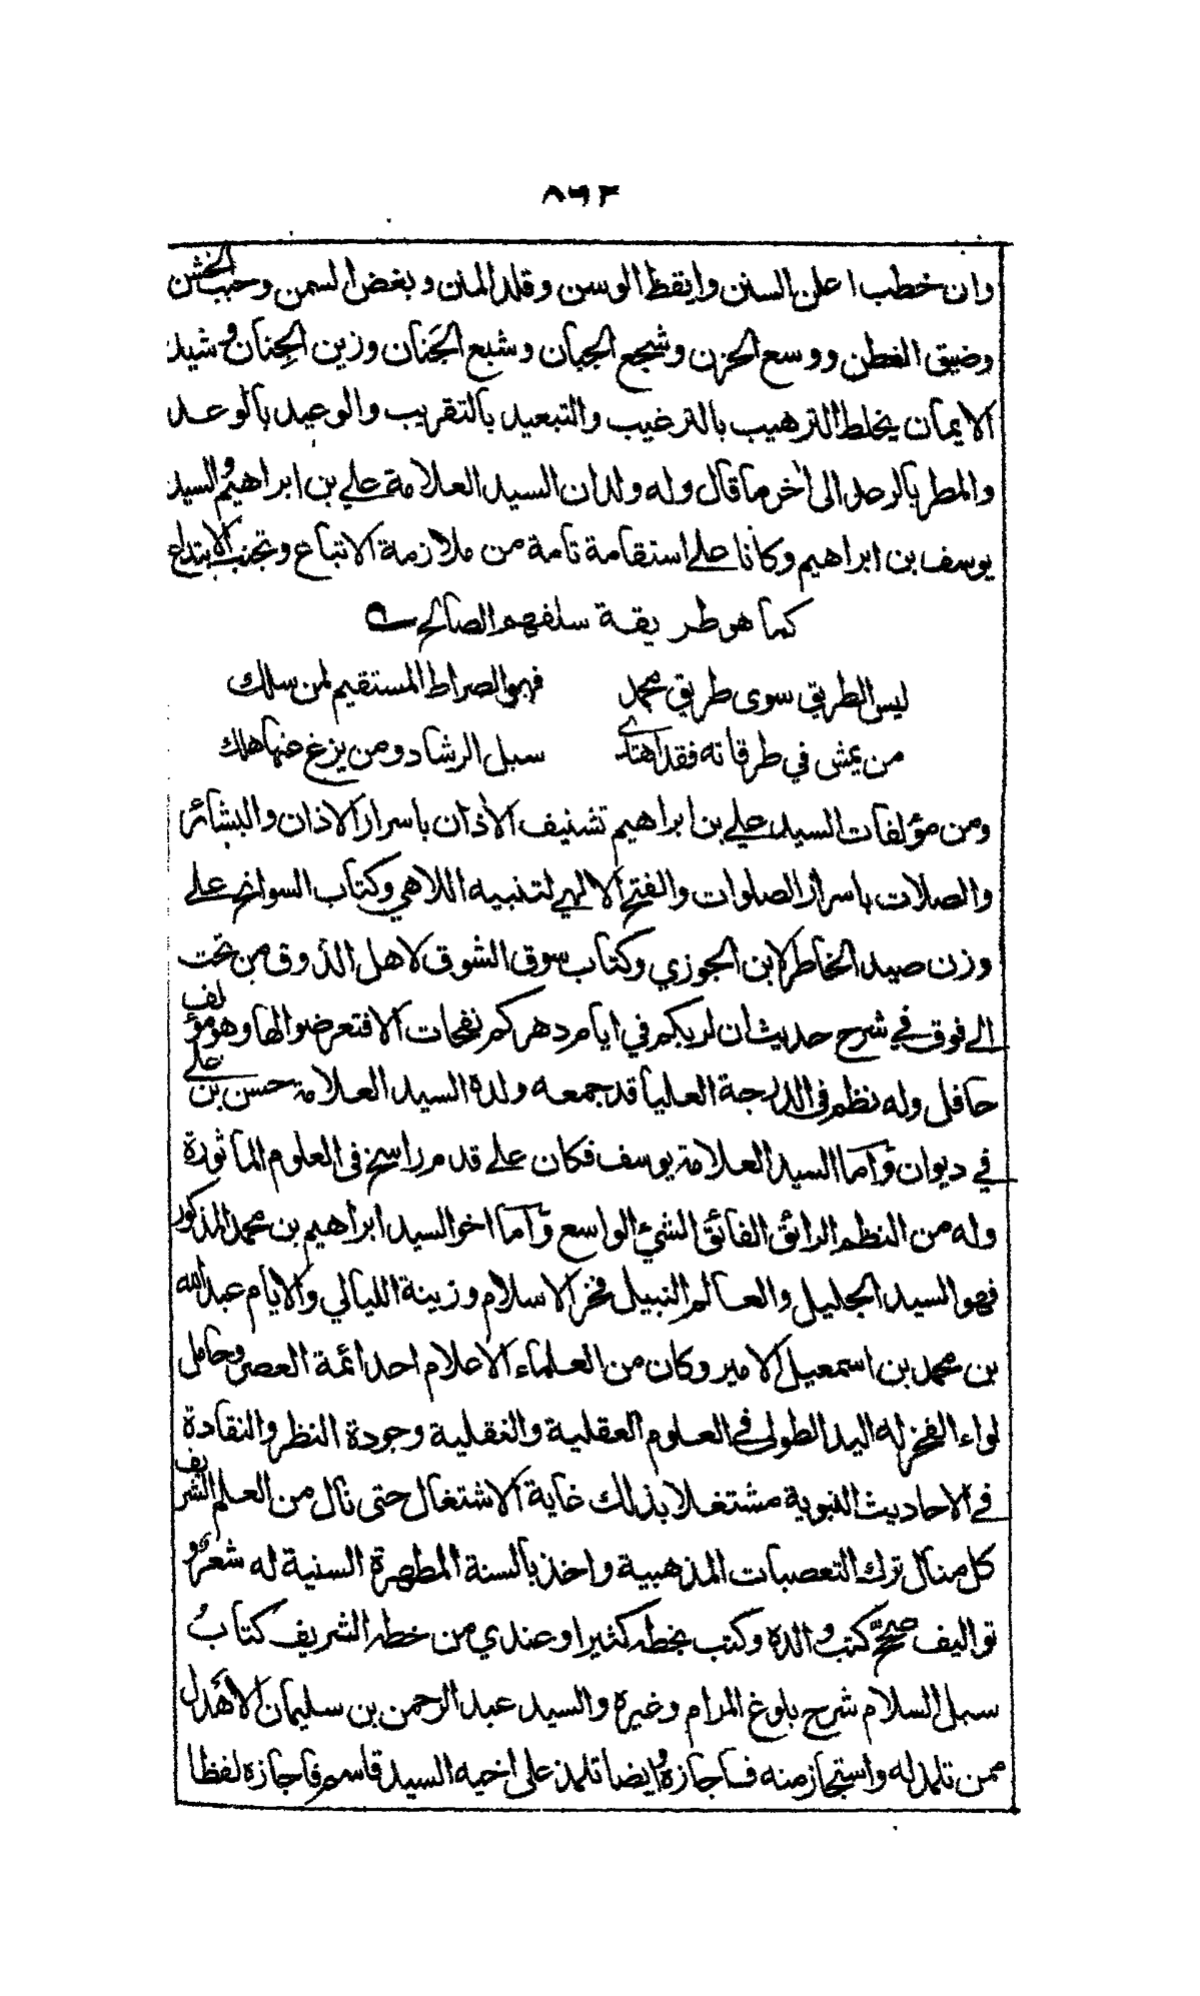 ٨٦٢
وان خطب اعلن السنن وايقظ الوسن وقلد المنن وبغض السمن وحبب الخشن
وضيق العطن ووسع الحزن وشجع الجبان وشبع الجَنان وزين الجِنان وشيد
الايمان يخلط الترهيب بالترغيب والتبعيد بالتقريب والوعيد بالوعد
والمطر بالرعد الى آخر ما قال وله ولدان السيد العلامة علي بن ابراهيم والسيد
يوسف بن ابراهيم وكانا على استقامة تامة من ملازمة الاتباع وتجنب الابتداع
كما هو طريقة سلفهم الصالح
ليس الطريق سوى طريق محمد فهو الصراط المستقيم لمن سلك
من يمش في طرقاته فقد اهتدى سبل الرشاد ومن يزغ عنها هلك
ومن مؤلفات السيد علي بن ابراهيم تشنيف الآذان باسرار الاذان والبشائر
والصلات باسرار الصلوات والفتح الالهي لتنبيه اللاهي وكتاب السوانح على
وزن صيد الخاطر لابن الجوزي وكتاب سوق الشوق لاهل الذوق من تحت
الى فوق في شرح حديث ان لربكم في ايام دهركم نفحات الا فتعرضوا لها وهو مؤلف
حافل وله نظم في الدرجة العليا قد جمعه ولده السيد العلامة حسن بن علي
في ديوان وآما السيد العلامة يوسف فكان على قدم راسخ في العلوم المأثورة
وله من النظم الرائق الفائق الشيء الواسع وآما اخو السيد ابراهيم بن محمد المذكور
فهو السيد الجليل والعالم النبيل فخر الاسلام وزينة الليالي والايام عبد الله
بن محمد بن اسمعيل الامير وكان من العلماء الاعلام احد ائمة العصر وحامل
لواء الفخر له اليد الطولى في العلوم العقلية والنقلية وجودة النظر والنقادة
في الاحاديث النبوية مشتغلا بذلك غاية الاشتغال حتى نال من العلم الشريف
كل منال ترك التعصبات المذهبية واخذ بالسنة المطهرة السنية له شعر و
تواليف صحح كتب والده وكتب بخطه كثيرا وعندي من خطه الشريف كتاب
سبل السلام شرح بلوغ المرام وغيره والسيد عبد الرحمن بن سليمان الاهدل
ممن تلمذ له واستجاز منه فاجازه وايضا تلمذ على اخيه السيد قاسم فاجازه لفظا